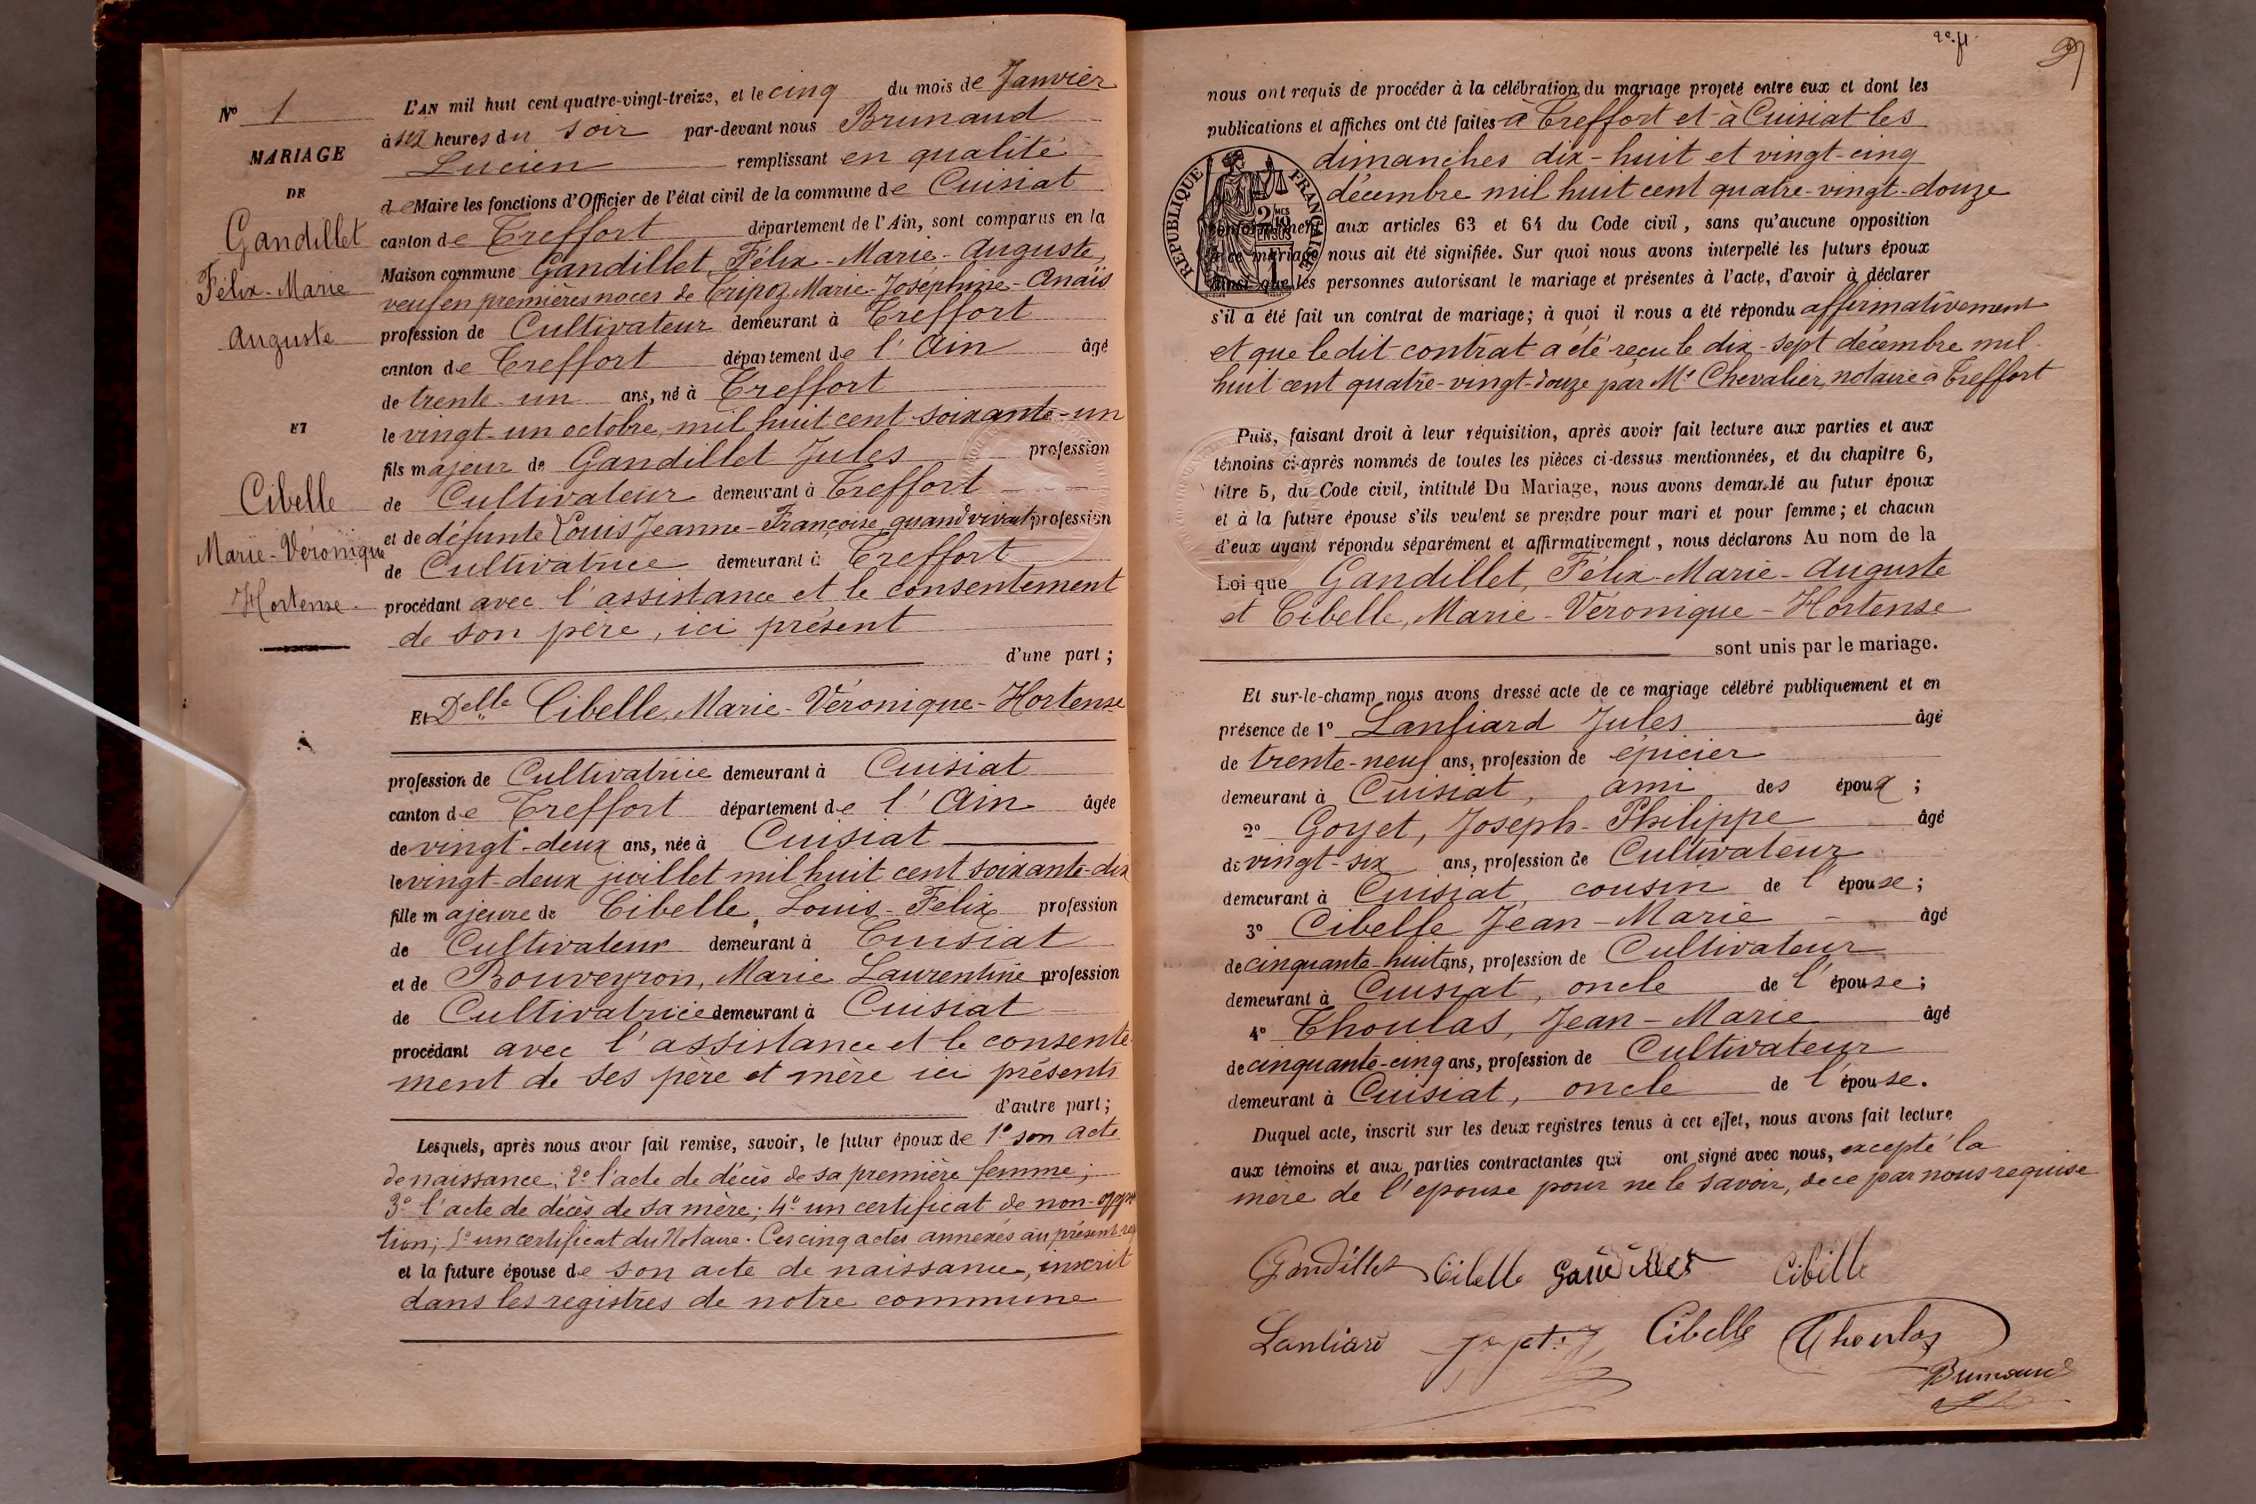 N° 1
MARIAGE
DE
Gandillet
Félix-Marie
Auguste
ET
Cibelle
Marie-Véronique
Hortense.
L'AN mil huit cent quatre-vingt-treize, et le cinq du mois de Janvier
à six heures du soir par-devant nous Brunaud
Lucien remplissant en qualité
de Maire les fonctions d'Officier de l'état civil de la commune de Cuisiat
canton de Treffort département de l'Ain, sont comparus en la
Maison commune Gandillet, Félix-Marie-Auguste,
veuf en premières noces de Tripoz Marie-Joséphine-Anaïs
profession de Cultivateur demeurant à Treffort
canton de Treffort département de l'Ain âgé
de trente-un ans, né à Treffort
le vingt-un octobre mil huit cent soixante-un
fils majeur de Gandillet Jules profession
de Cultivateur demeurant à Treffort
et de défunte Louis Jeanne-Françoise, quand vivait profession
de Cultivatrice demeurant à Treffort
procédant avec l'assistance et le consentement
de son père, ici présent
d'une part ;
Et Delle Cibelle, Marie-Véronique-Hortense
profession de Cultivatrice demeurant à Cuisiat
canton de Treffort département de l'Ain âgée
de vingt-deux ans, née à Cuisiat
le vingt-deux juillet mil huit cent soixante-dix
fille majeure de Cibelle, Louis-Félix profession
de Cultivateur demeurant à Cuisiat
et de Bouveyron, Marie Laurentine profession
de Cultivatrice demeurant à Cuisiat
procédant avec l'assistance et le consente-
ment de ses père et mère ici présents
d'autre part ;
Lesquels, après nous avoir fait remise, savoir, le futur époux de 1° son acte
de naissance ; 2° l'acte de décès de sa première femme ;
3° l'acte de décès de sa mère ; 4° un certificat de non-oppo
tion ; 5° un certificat du Notaire. Ces cinq actes annexés au présent
et la future épouse de son acte de naissance, inscrit
dans les registres de notre commune
nous ont requis de procéder à la célébration du mariage projeté entre eux et dont les
publications et affiches ont été faites à Treffort et à Cuisiat les
dimanches dix-huit et vingt-cinq
décembre mil huit cent quatre-vingt-douze
RÉPUBLIQUE FRANÇAISE
conformément aux articles 63 et 64 du Code civil, sans qu'aucune opposition
à ce mariage nous ait été signifiée. Sur quoi nous avons interpellé les futurs époux
Ainsi que les personnes autorisant le mariage et présentes à l'acte, d'avoir à déclarer
s'il a été fait un contrat de mariage ; à quoi il nous a été répondu affirmativement
et que ledit contrat a été reçu le dix-sept décembre mil
huit cent quatre-vingt-douze par Me Chevalier, notaire à Treffort
Puis, faisant droit à leur réquisition, après avoir fait lecture aux parties et aux
témoins ci-après nommés de toutes les pièces ci-dessus mentionnées, et du chapitre 6,
titre 5, du Code civil, intitulé Du Mariage, nous avons demandé au futur époux
et à la future épouse s'ils veulent se prendre pour mari et pour femme ; et chacun
d'eux ayant répondu séparément et affirmativement, nous déclarons Au nom de la
Loi que Gandillet, Félix-Marie-Auguste
et Cibelle, Marie-Véronique-Hortense
sont unis par le mariage.
Et sur-le-champ nous avons dressé acte de ce mariage célébré publiquement et en
présence de 1° Lanliard Jules âgé
de trente-neuf ans, profession de épicier
demeurant à Cuisiat, ami des époux ;
2° Goyet, Joseph-Philippe âgé
de vingt-six ans, profession de Cultivateur
demeurant à Cuisiat, cousin de l'épouse ;
3° Cibelle Jean-Marie âgé
de cinquante-huit ans, profession de Cultivateur
demeurant à Cuisiat, oncle de l'épouse ;
4° Thoulas, Jean-Marie âgé
de cinquante-cinq ans, profession de Cultivateur
demeurant à Cuisiat, oncle de l'épouse.
Duquel acte, inscrit sur les deux registres tenus à cet effet, nous avons fait lecture
aux témoins et aux parties contractantes qui ont signé avec nous, excepté la
mère de l'épouse pour ne le savoir, de ce par nous requise
Gandillet Cibelle Gandillet Cibelle
Lanliard Cibelle Thoulas
Brunaud